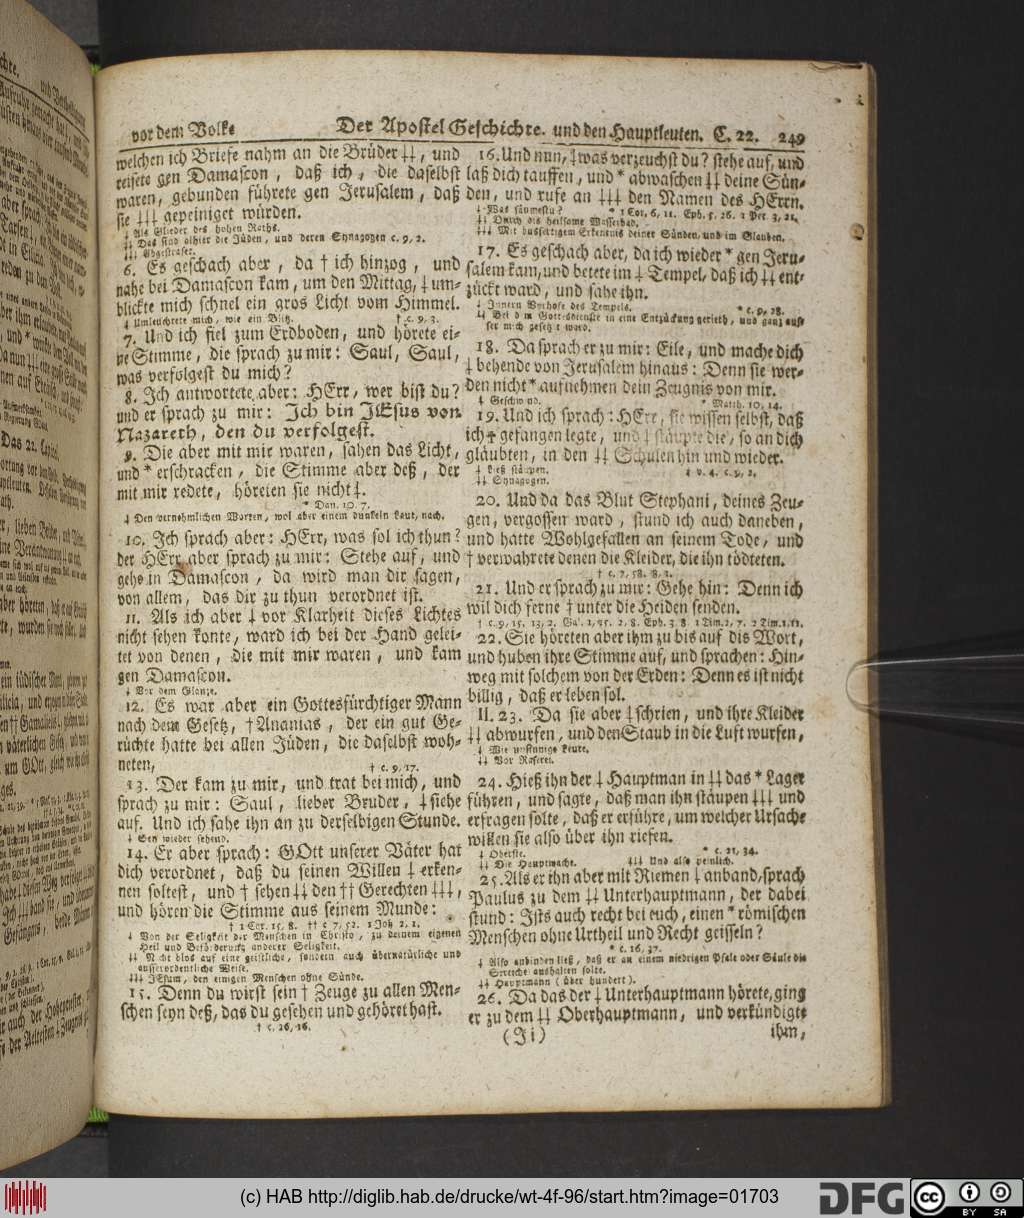 vor dem Volke
Der Apostel Geschichte. und den Hauptleuten. C. 22. 249
welchen ich Briefe nahm an die Brüder ‡‡, und
reisete gen Damascon, daß ich, die daselbst
waren, gebunden führete gen Jerusalem, daß
sie ‡‡‡ gepeiniget würden.
‡ Als Glieder des hohen Raths.
‡‡ Das sind alhier die Jüden, und deren Synagogen c. 9, 2.
‡‡‡ Abgestrafet.
6. Es geschach aber, da † ich hinzog, und
nahe bei Damascon kam, um den Mittag, ‡ um-
blickte mich schnel ein gros Licht vom Himmel.
‡ Umleuchtete mich, wie ein Blitz. † c. 9, 3.
7. Und ich fiel zum Erdboden, und hörete ei-
ne Stimme, die sprach zu mir: Saul, Saul,
was verfolgest du mich?
8. Ich antwortete aber: HErr, wer bist du?
und er sprach zu mir: Ich bin JEsus von
Nazareth, den du verfolgest.
9. Die aber mit mir waren, sahen das Licht,
und * erschracken, die Stimme aber deß, der
mit mir redete, höreten sie nicht ‡.
* Dan. 10, 7.
‡ Den vernehmlichen Worten, wol aber einem dunkeln Laut, nach.
10. Ich sprach aber: HErr, was sol ich thun?
der HErr aber sprach zu mir: Stehe auf, und
gehe in Damascon, da wird man dir sagen,
von allem, das dir zu thun verordnet ist.
11. Als ich aber ‡ vor Klarheit dieses Lichtes
nicht sehen konte, ward ich bei der Hand gelei-
tet von denen, die mit mir waren, und kam
gen Damascon.
‡ Vor dem Glanze.
12. Es war aber ein Gottesfürchtiger Mann
nach dem Gesetz, † Ananias, der ein gut Ge-
rüchte hatte bei allen Jüden, die daselbst woh-
neten,
† c. 9, 17.
13. Der kam zu mir, und trat bei mich, und
sprach zu mir: Saul, lieber Bruder, ‡ siehe
auf. Und ich sahe ihn an zu derselbigen Stunde.
‡ Sey wieder sehend.
14. Er aber sprach: GOtt unserer Väter hat
dich verordnet, daß du seinen Willen ‡ erken-
nen soltest, und † sehen ‡‡ den †† Gerechten ‡‡‡,
und hören die Stimme aus seinem Munde:
† 1 Cor. 15, 8. †† c. 7, 52. 1 Joh. 2, 1.
‡ Von der Seligkeit der Menschen in Christo, zu deinem eigenen
Heil und Beförderung anderer Seligkeit.
‡‡ Nicht blos auf eine geistliche, sondern auch übernatürliche und
ausserordentliche Weise.
‡‡‡ JEsum, den einigen Menschen ohne Sünde.
15. Denn du wirst sein † Zeuge zu allen Men-
schen seyn deß, das du gesehen und gehöret hast.
† c. 26, 16.
16. Und nun, ‡ was verzeuchst du? stehe auf, und
laß dich tauffen, und * abwaschen ‡‡ deine Sün-
den, und rufe an ‡‡‡ den Namen des HErrn.
‡ Was säumestu? * 1 Cor. 6, 11. Eph. 5, 26. 1 Pet. 3, 21.
‡‡ Durch dis heilsame Wasserbad.
‡‡‡ Mit busfertigem Erkentnis deiner Sünden, und im Glauben.
17. Es geschach aber, da ich wieder * gen Jeru-
salem kam, und betete im ‡ Tempel, daß ich ‡‡ ent-
zückt ward, und sahe ihn.
‡ Innern Vorhofe des Tempels. * c. 9, 28.
‡‡ Bei dem Gottesdienste in eine Entzückung gerieth, und ganz ausser
mich gesetzt ward.
18. Da sprach er zu mir: Eile, und mache dich
‡ behende von Jerusalem hinaus: Denn sie wer-
den nicht * aufnehmen dein Zeugnis von mir.
‡ Geschwind. * Matth. 10, 14.
19. Und ich sprach: HErr, sie wissen selbst, daß
ich † gefangen legte, und ‡ stäupte die, so an dich
gläubten, in den ‡‡ Schulen hin und wieder.
‡ Ließ stäupen. † v. 4. c. 9, 2.
‡‡ Synagogen.
20. Und da das Blut Stephani, deines Zeu-
gen, vergossen ward, stund ich auch daneben,
und hatte Wohlgefallen an seinem Tode, und
† verwahrete denen die Kleider, die ihn tödteten.
† c. 7, 58. 8, 1.
21. Und er sprach zu mir: Gehe hin: Denn ich
wil dich ferne † unter die Heiden senden.
† c. 9, 15. 13, 2. Gal. 1, 15. 2, 8. Eph. 3, 8. 1 Tim. 2, 7. 2 Tim. 1, 11.
22. Sie höreten aber ihm zu bis auf dis Wort,
und huben ihre Stimme auf, und sprachen: Hin-
weg mit solchem von der Erden: Denn es ist nicht
billig, daß er leben sol.
II. 23. Da sie aber ‡ schrien, und ihre Kleider
‡‡ abwurfen, und den Staub in die Luft wurfen,
‡ Wie unsinnige Leute.
‡‡ Vor Raserei.
24. Hieß ihn der ‡ Hauptman in ‡‡ das * Lager
führen, und sagte, daß man ihn stäupen ‡‡‡ und
erfragen solte, daß er erführe, um welcher Ursache
willen sie also über ihn riefen.
‡ Oberste. * c. 21, 34.
‡‡ Die Hauptwache. ‡‡‡ Und also peinlich.
25. Als er ihn aber mit Riemen ‡ anband, sprach
Paulus zu dem ‡‡ Unterhauptmann, der dabei
stund: Ists auch recht bei euch, einen * römischen
Menschen ohne Urtheil und Recht geisseln?
* c. 16, 37.
‡ Also anbinden ließ, daß er an einem niedrigen Pfale oder Säule die
Streiche aushalten solte.
‡‡ Hauptmann (über hundert).
26. Da das der ‡ Unterhauptmann hörete, ging
er zu dem ‡‡ Oberhauptmann, und verkündigte
(Ji) ihm,
(c) HAB http://diglib.hab.de/drucke/wt-4f-96/start.htm?image=01703
DFG
cc
BY SA